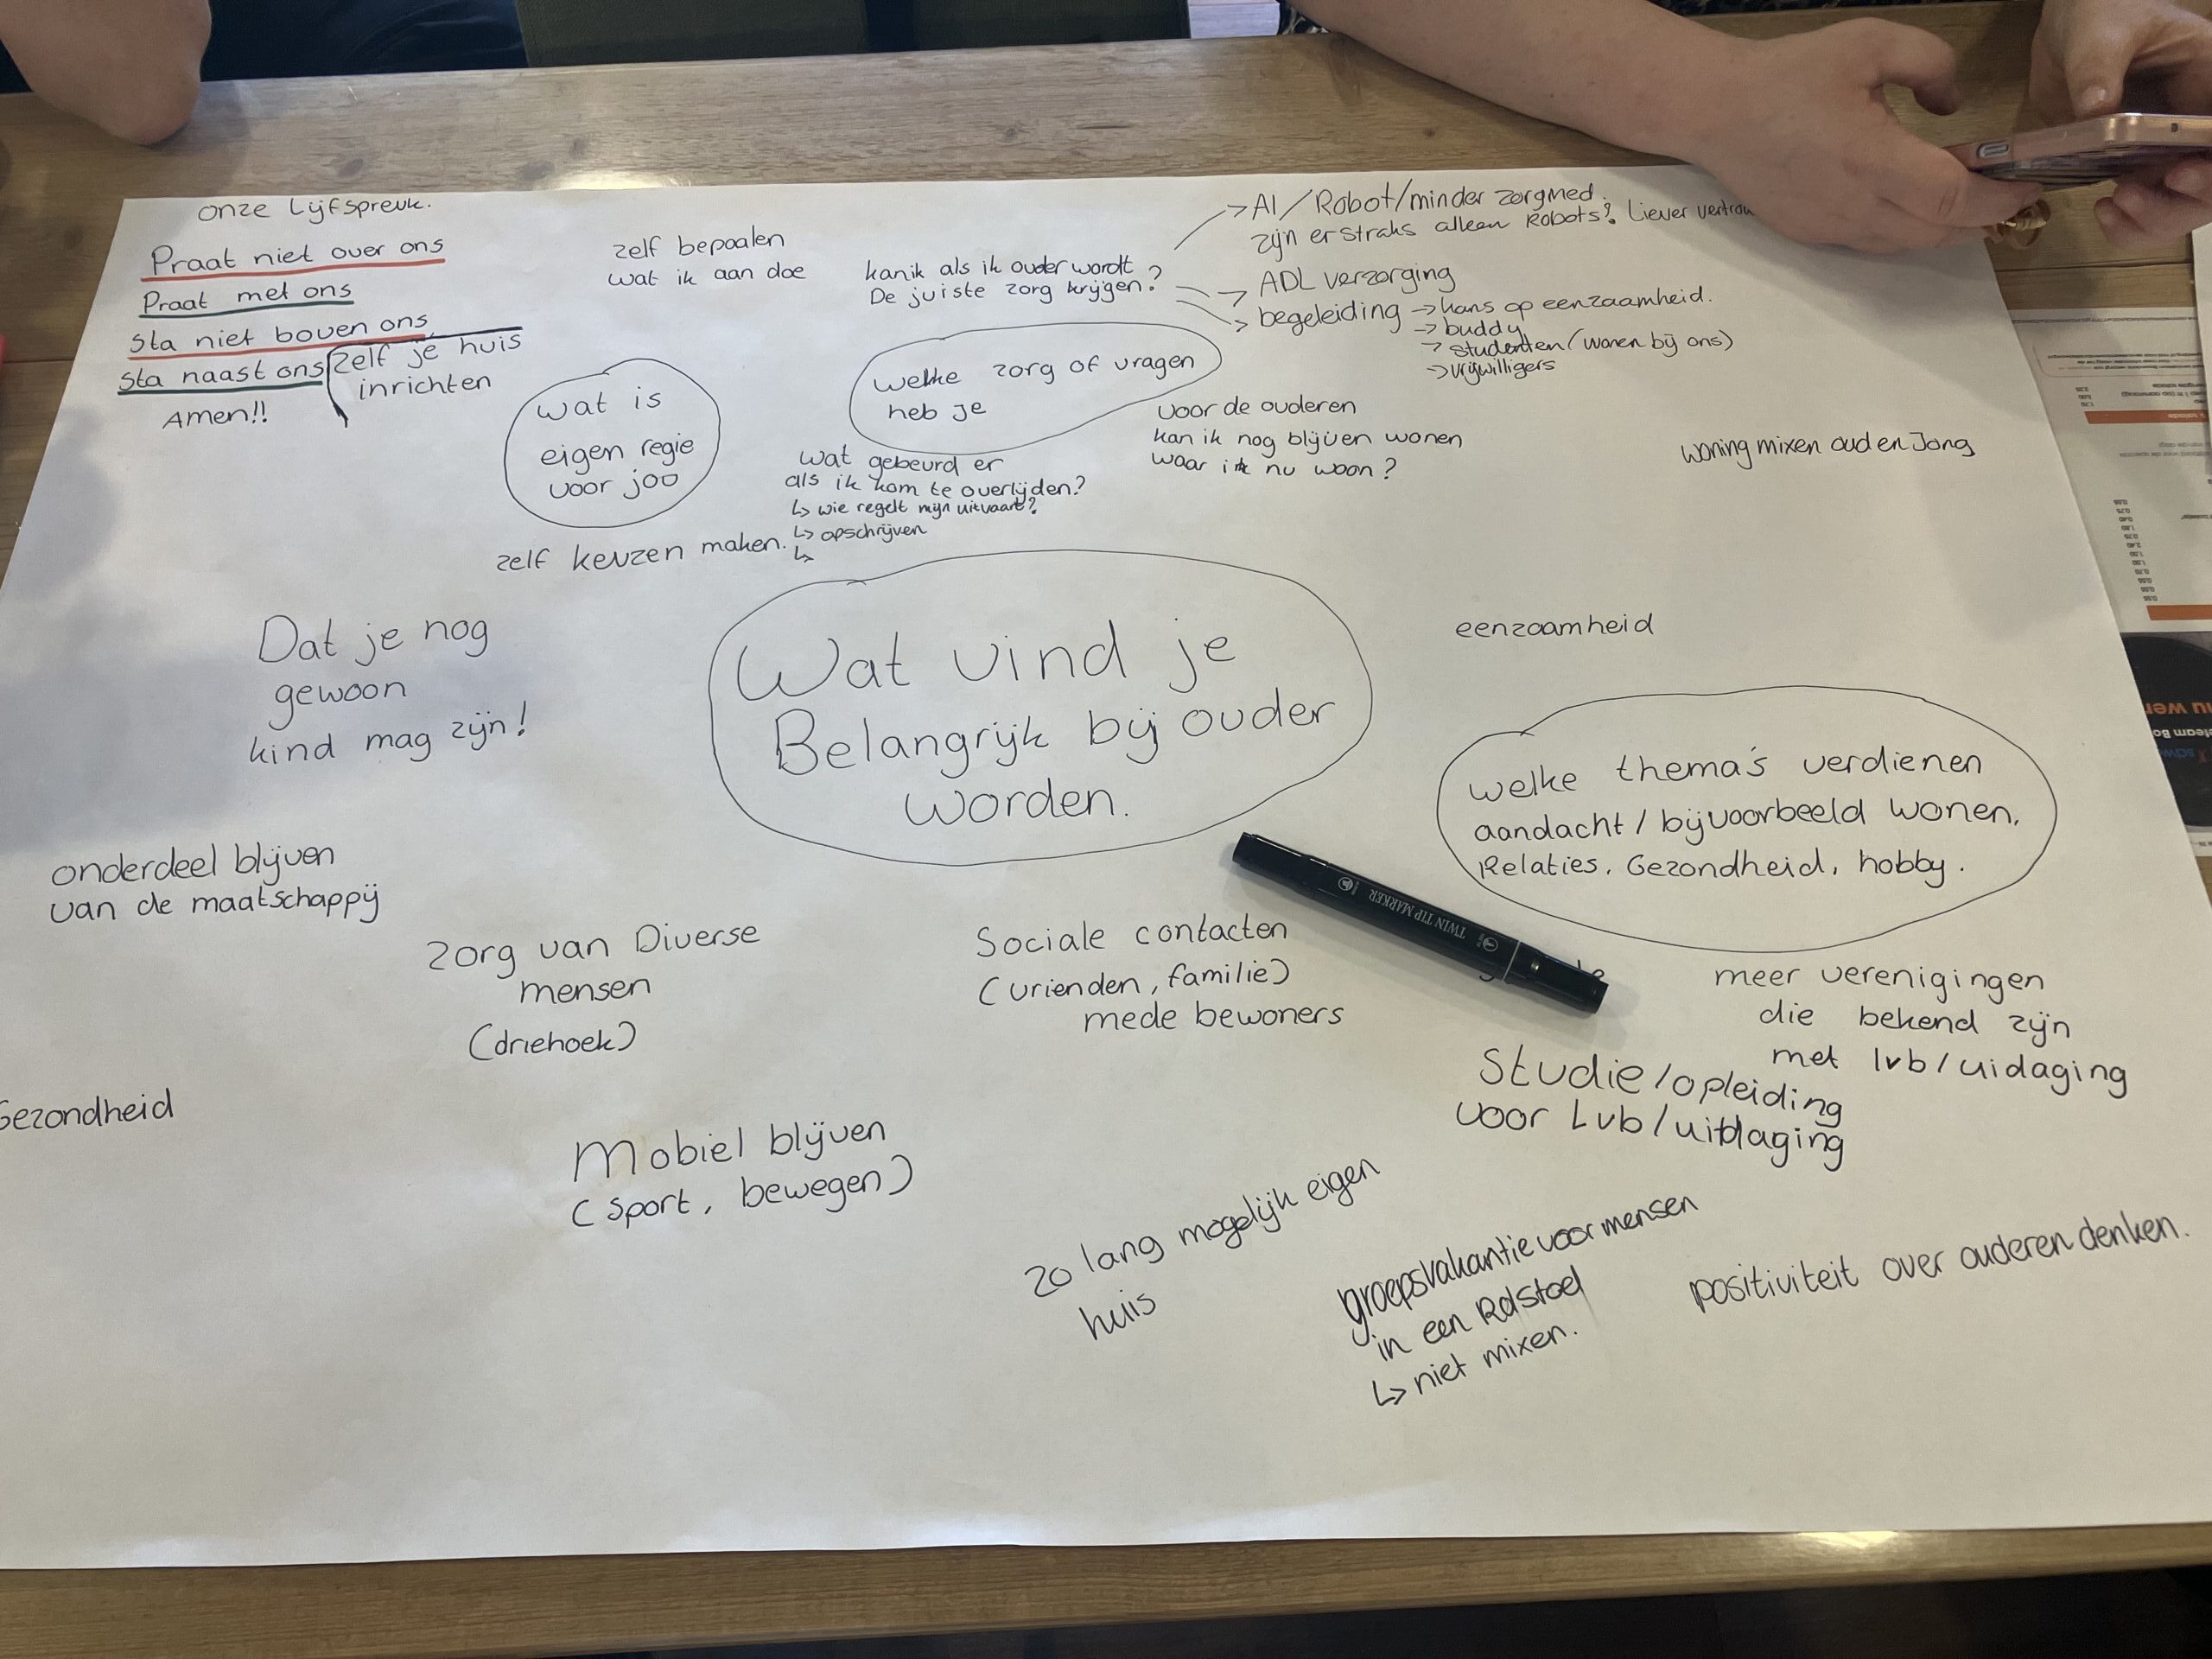 onze Lijfspreuk.
Praat niet over ons
Praat met ons
Sta niet boven ons
Sta naast ons
Amen!!
zelf je huis
inrichten
zelf bepaalen
wat ik aan doe
wat is
eigen regie
voor joo
zelf keuzen maken.
kan ik als ik ouder wordt
De juiste zorg krijgen?
→ AI/Robot/minder zorgmed.
zijn er straks alleen Robots? Liever
→ ADL verzorging
→ begeleiding → kans op eenzaamheid.
→ buddy
→ studenten (wonen bij ons)
→ vrijwilligers
welke zorg of vragen
heb je
wat gebeurd er
als ik kom te overlijden?
↳ wie regelt mijn uitvaart?
↳ opschrijven
↳
voor de ouderen
kan ik nog blijven wonen
waar ik nu woon?
woning mixen oud en Jong
Wat vind je
Belangrijk bij ouder
worden.
Dat je nog
gewoon
kind mag zijn!
eenzaamheid
welke thema's verdienen
aandacht / bijvoorbeeld wonen,
Relaties, Gezondheid, hobby.
onderdeel blijven
van de maatschappij
zorg van Diverse
mensen
(driehoek)
Sociale contacten
(vrienden, familie)
mede bewoners
TWIN TIP MARKER
meer verenigingen
die bekend zijn
met lvb/uidaging
Studie/opleiding
voor Lvb/uitdaging
Gezondheid
Mobiel blijven
(sport, bewegen)
zo lang mogelijk eigen
huis
groepsvakantie voor mensen
in een Rolstoel
↳ niet mixen.
positiviteit over ouderen denken.